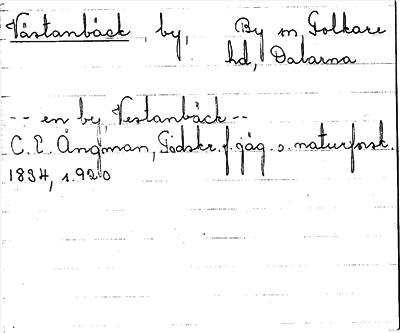 Västanbäck, by, By sn, Folkare
hd, Dalarna
-- en by Vestanbäck --
C. E. Ångman, Tidskr. f. jäg. o. naturforsk.
1834, s. 920